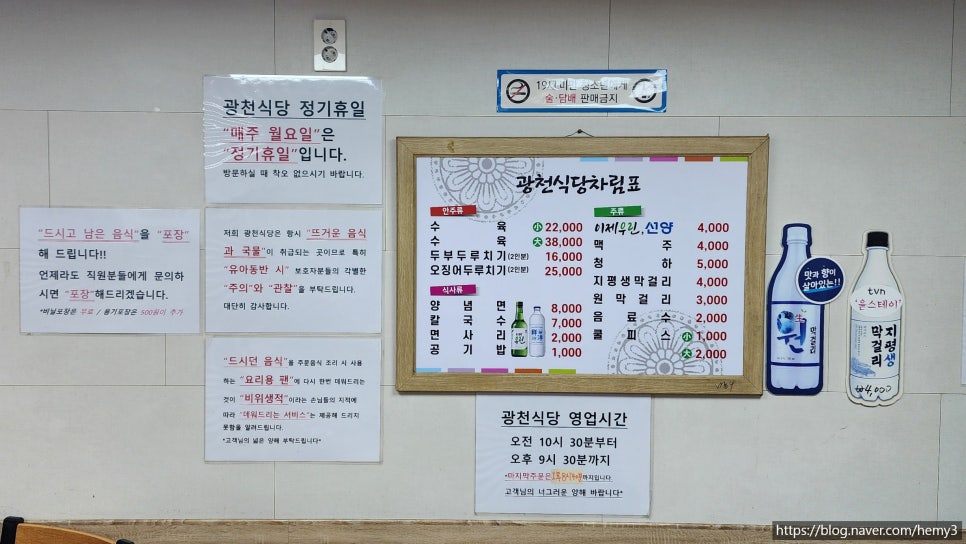 19세 미만 청소년에게
술·담배 판매금지
광천식당 정기휴일
"매주 월요일"은
"정기휴일"입니다.
방문하실 때 착오 없으시기 바랍니다.
"드시고 남은 음식"을 "포장"
해 드립니다!!
언제라도 직원분들에게 문의하
시면 "포장"해드리겠습니다.
*비닐포장은 무료 / 용기포장은 500원이 추가
저희 광천식당은 항시 "뜨거운 음식
과 국물"이 취급되는 곳이므로 특히
"유아동반 시" 보호자분들의 각별한
"주의"와 "관찰"을 부탁드립니다.
대단히 감사합니다.
"드시던 음식"을 주문음식 조리 시 사용
하는 "요리용 팬"에 다시 한번 데워드리는
것이 "비위생적"이라는 손님들의 지적에
따라 "데워드리는 서비스"는 제공해 드리지
못함을 알려드립니다.
*고객님의 넓은 양해 부탁드립니다*
광천식당차림표
안주류
수육 小 22,000
수육 大 38,000
두부두루치기(2인분) 16,000
오징어두루치기(2인분) 25,000
식사류
양념면 8,000
칼국수 7,000
면사리 2,000
공기밥 1,000
주류
이제우린, 선양 4,000
맥주 4,000
청하 5,000
지평생막걸리 4,000
원막걸리 3,000
음료수 2,000
쿨피스 小 1,000
大 2,000
광천식당 영업시간
오전 10시 30분부터
오후 9시 30분까지
*마지막주문은 까지입니다.
고객님의 너그러운 양해 바랍니다*
맛과 향이
살아있는!!
生
원
막걸리
tvn
"윤스테이"
지평생
막걸리
₩4,000
https://blog.naver.com/hemy3